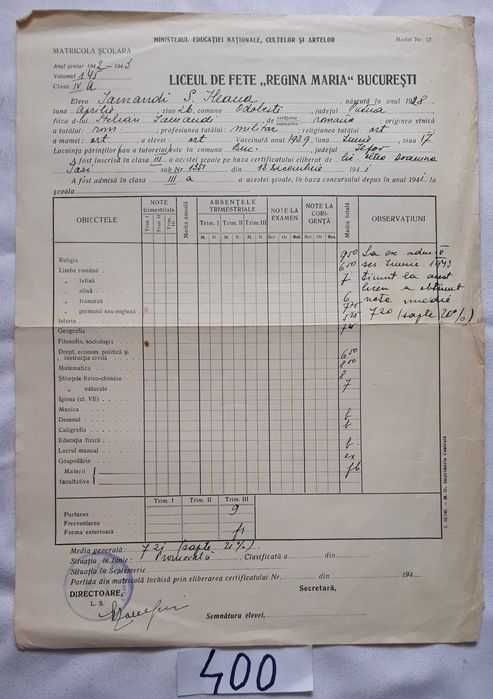 MINISTERUL EDUCAȚIEI NAȚIONALE, CULTELOR ȘI ARTELOR
Model Nr. 13
MATRICOLA ȘCOLARA
Anul școlar 1942-1943
Volumul 145
Clasa IV A
LICEUL DE FETE „REGINA MARIA” BUCUREȘTI
Eleva Samandi S. Ileana, născută în anul 1928,
luna Aprilie, ziua 26, comuna Odobești, județul Putna
fiica a lui Stelian Samandi de romana, originea etnică
a tatălui rom; profesiunea tatălui militar; religiunea tatălui ort
a mamei ort a elevei ort Vaccinată anul 1939 luna Iunie, ziua 17
Locuința părinților sau a tutorelui este în comuna Buc., județul Ilfov
A fost înscrisă în clasa III a acestei școale pe baza certificatului eliberat de
Iași sub Nr. 1351 din 13 Decembrie 1941
A fost admisă în clasa III a a acestei școale, în baza concursului depus în anul 1941 la
școala
OBIECTELE
NOTE trimestriale
Trim. I
Trim. II
Trim. III
Media anuală
ABSENȚELE TRIMESTRIALE
Trim. I Trim. II Trim. III
M. N. M. N. M. N.
NOTE LA EXAMEN
NOTE LA CORIGENȚĂ
Media totală
OBSERVAȚIUNI
Religia 9 50
Limba română 6 50
„ latină 7
„ elină
„ franceză 6
„ germană sau engleză
Istoria
Geografia
Filosofia, sociologia
Drept, econom. politică și instrucția civilă 6 50
Matematica 8 50
Științele fizico-chimice 8
„ naturale 7
Igiena (cl. VII)
Muzica
Desenul
Caligrafia
Educația fizică
Lucrul manual
Gospodăria ex
Materii facultative fb
La ex
ses Iunie 1943
ținut la acest
liceu a obținut
nota medie
7 20 (șapte 20%)
Trim. I Trim. II Trim. III
Purtarea 9
Frecventarea
Forma exterioară
Media generală: 7 21 (șapte 21%)
Situația în Iunie: Promovată Clasificată a din
Situația la Septemvrie
Partida din matricolă închisă prin eliberarea certificatului Nr. din 194
DIRECTOARE,
L. S.
Secretară,
Semnătura elevei,
400